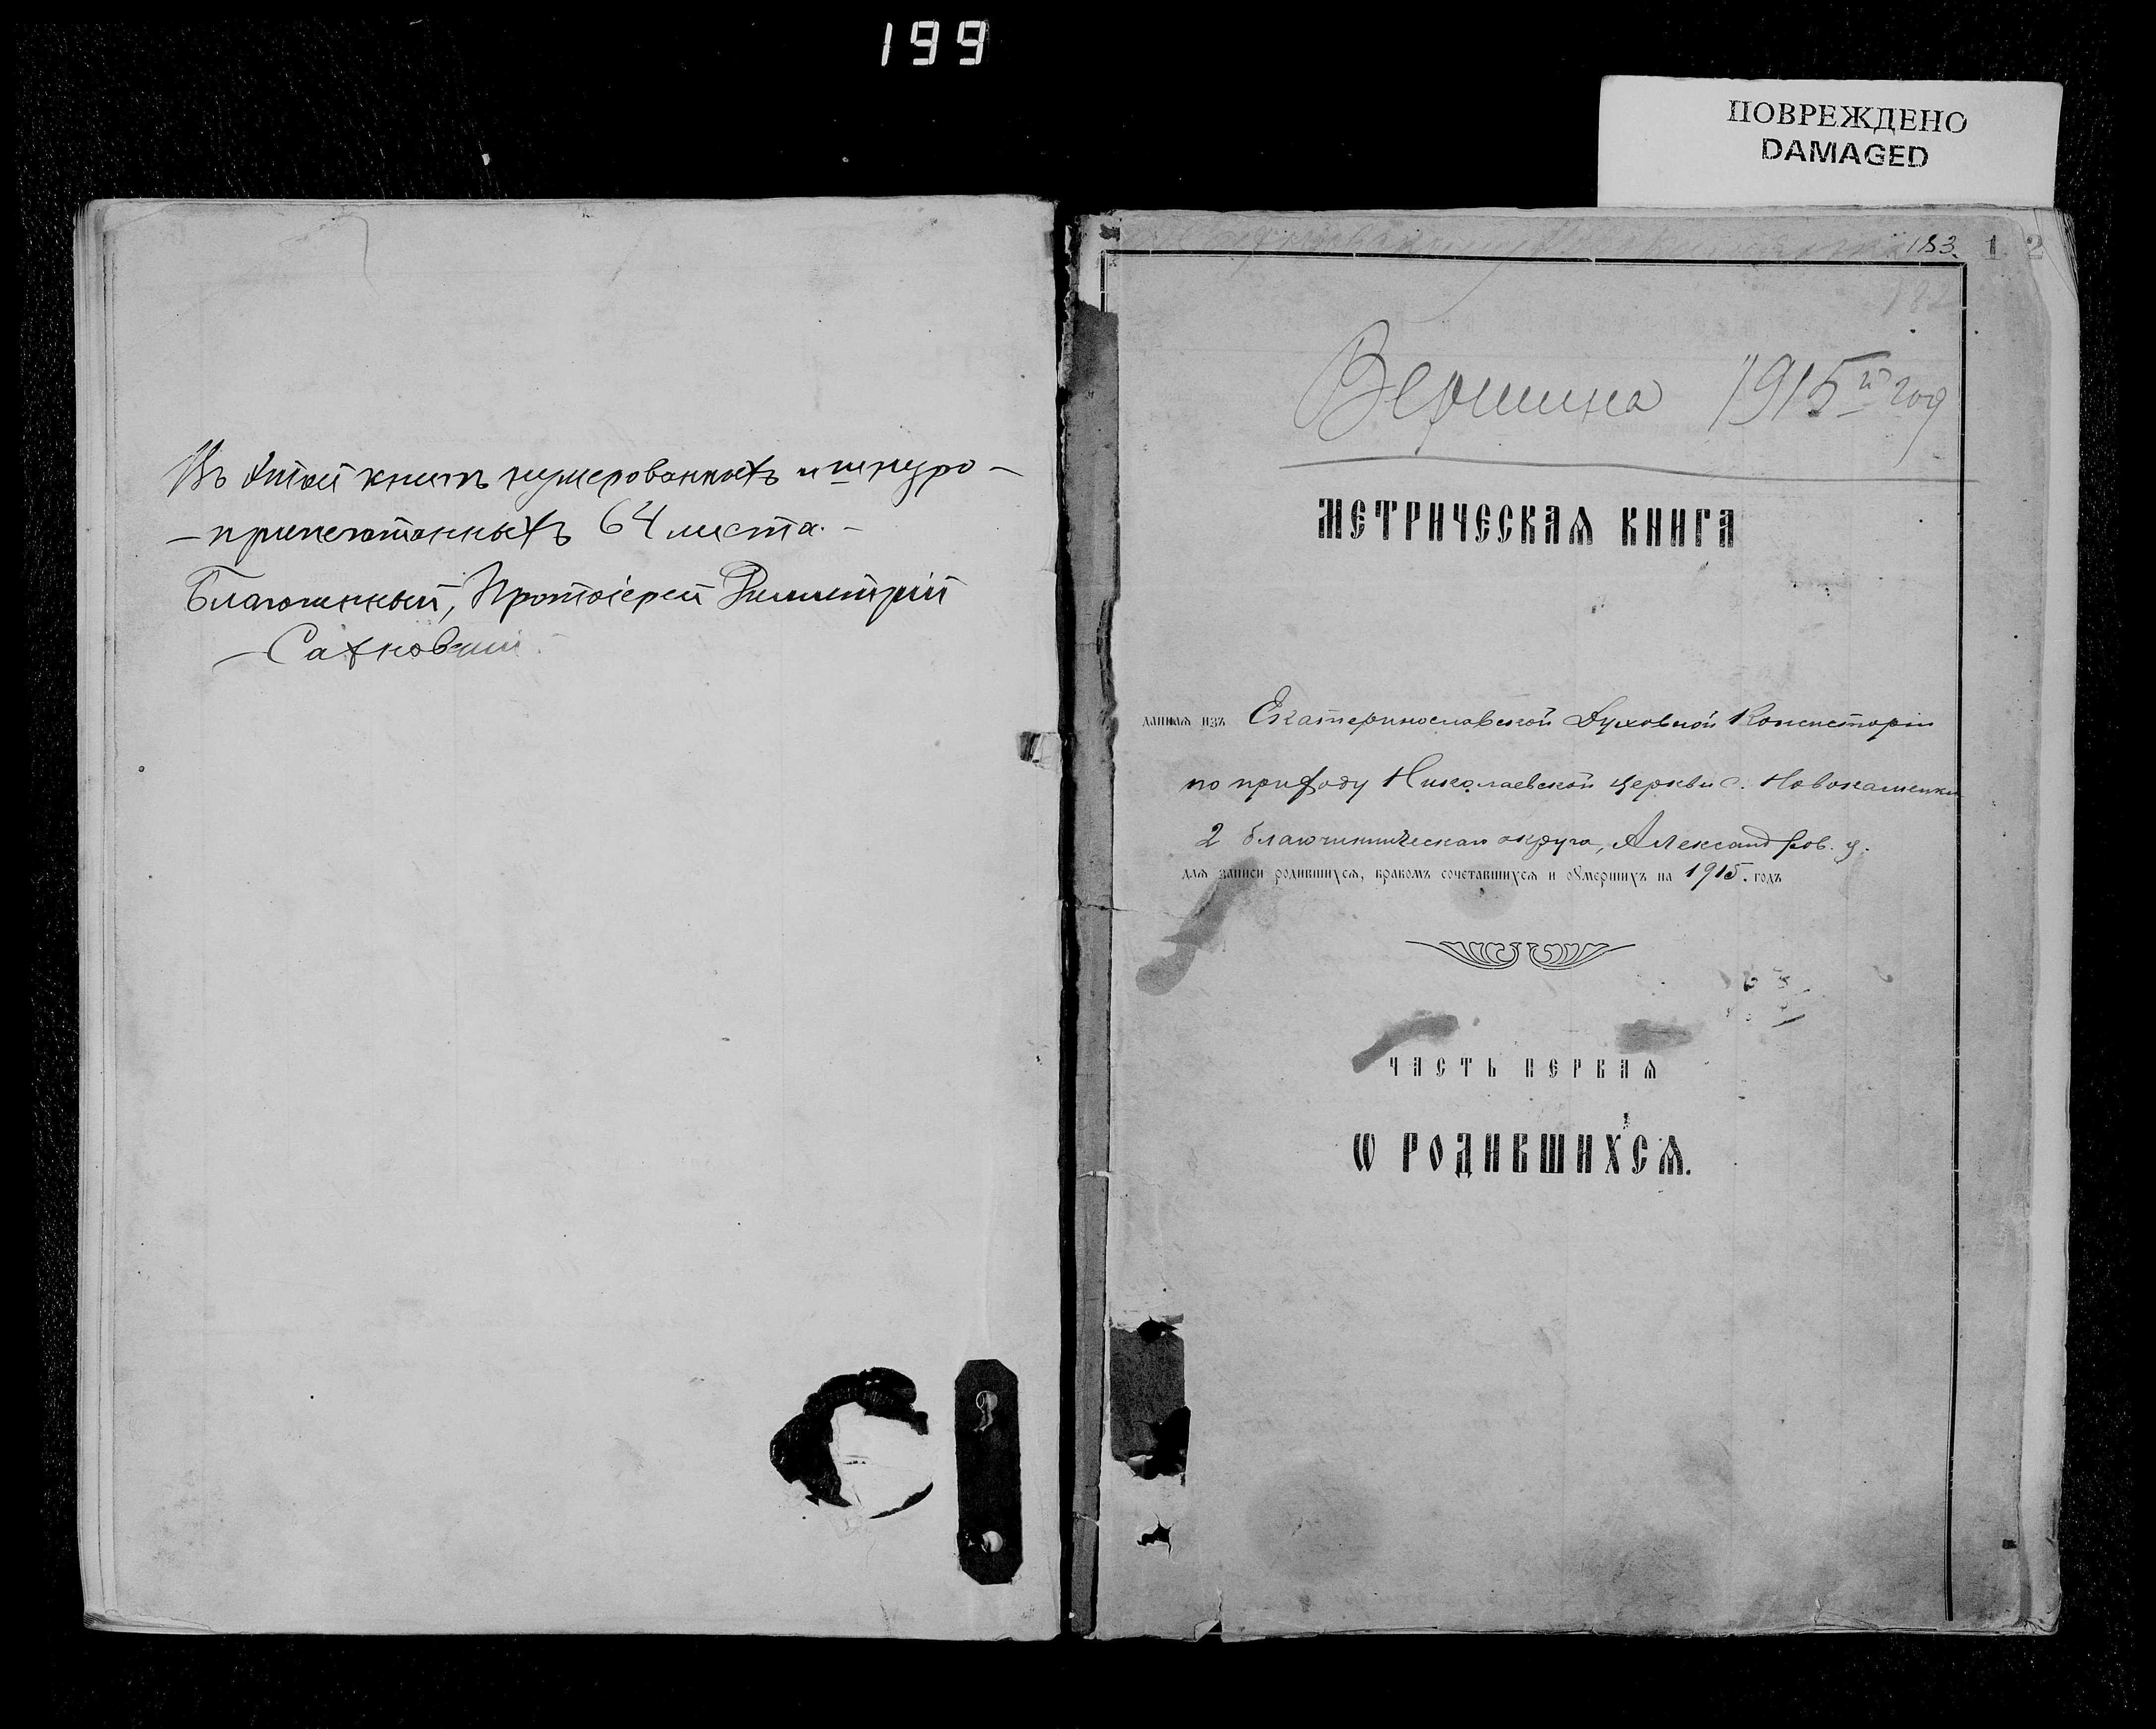 199
ПОВРЕЖДЕНО
DAMAGED
Въ этой книгѣ нумерованныхъ и шнуро-
-припечатанныхъ 64 листа. -
Благочинный, Протоіерей Димитрій
Сахновскій
183.
1 2
Вершина 1915й год
МЕТРИЧЕСКАѦ КНИГА
даннаѧ изъ Екатеринославской Духовной Консисторіи
по приходу Николаевской церкви с. Новокаменки
2 благочинническаго округа, Александров. у.
длѧ записи родившихсѧ, бракомъ сочетавшихсѧ и ѹмершихъ на 1915. годъ
ЧАСТЬ ПЕРВАѦ
Ѡ РОДИВШИХСѦ.